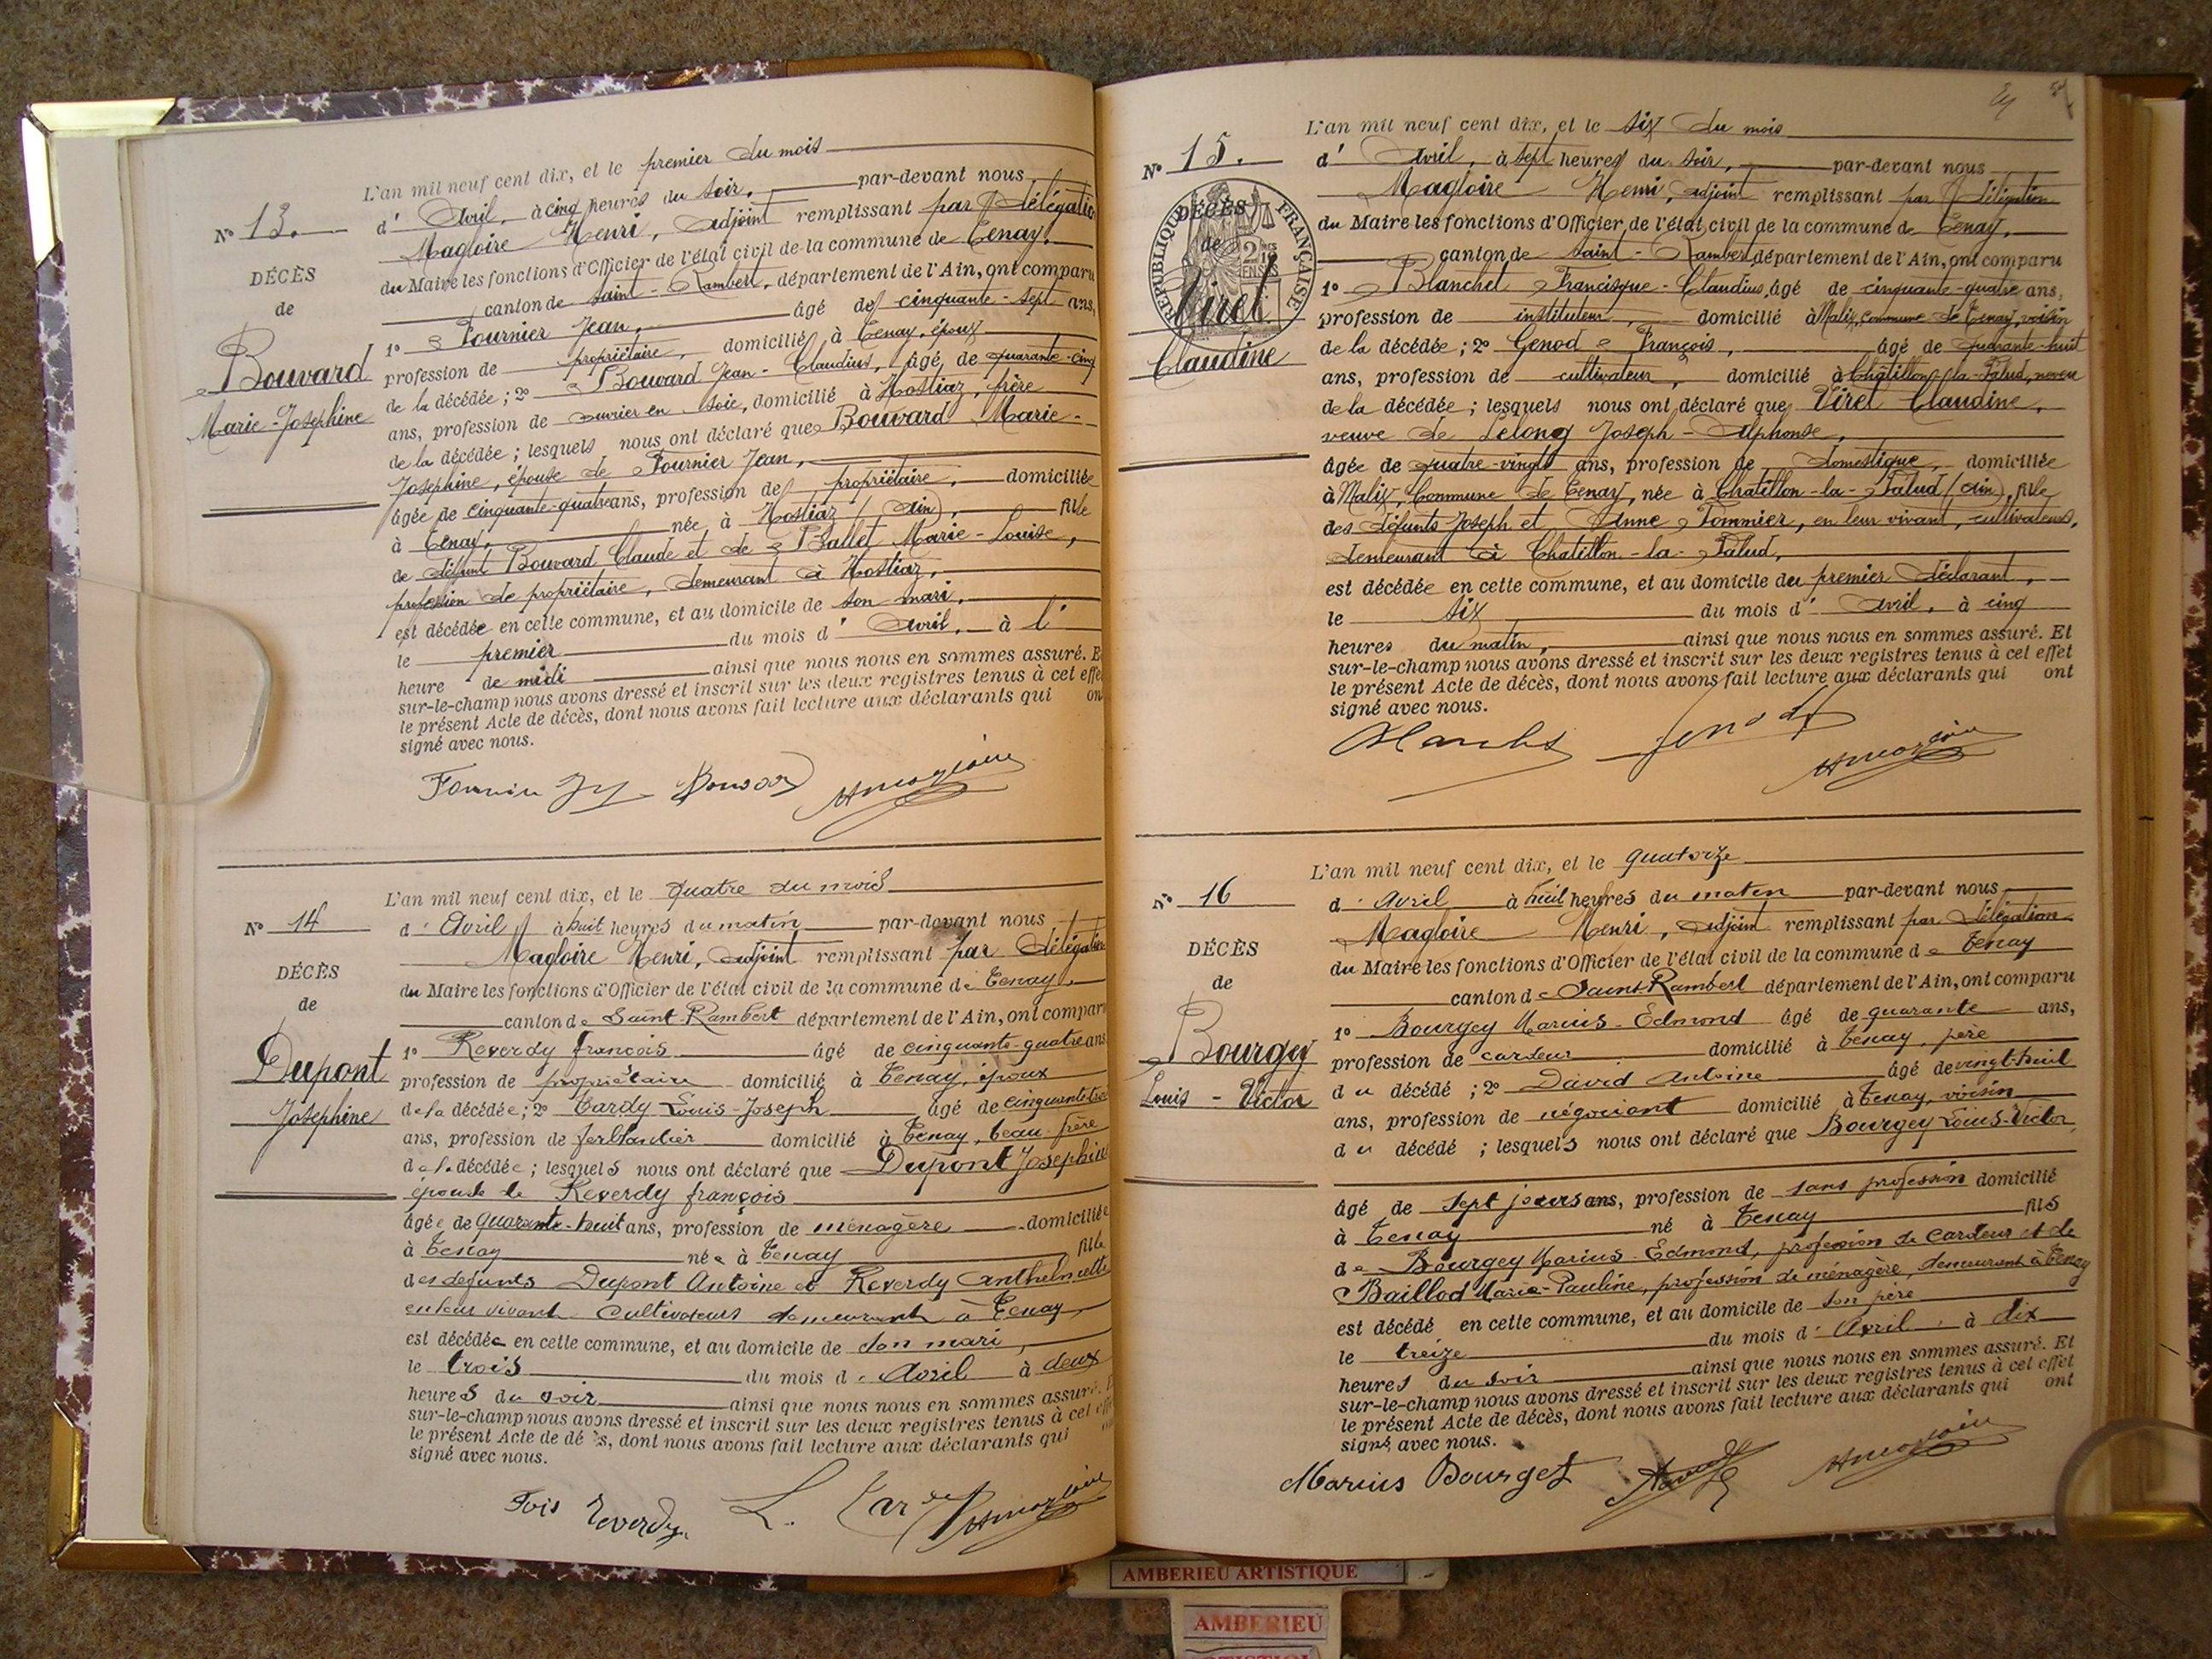 L'an mil neuf cent dix, et le premier du mois
N° 13.
d' Avril, à cinq heures du soir, par-devant nous
Magloire Henri, adjoint remplissant par délégation
du Maire les fonctions d'Officier de l'état civil de la commune de Tenay,
DÉCÈS
canton de Saint-Rambert, département de l'Ain, ont comparu
de
1° Fournier Jean, âgé de cinquante-sept ans,
Bouvard
profession de propriétaire, domicilié à Tenay, époux
Marie-Josephine
de la décédée; 2° Bouvard Jean-Claudius, âgé de quarante-cinq
ans, profession de ouvrier en soie, domicilié à Hostiaz, frère
de la décédée; lesquels nous ont déclaré que Bouvard Marie-
Josephine, épouse de Fournier Jean,
âgée de cinquante-quatre ans, profession de propriétaire, domiciliée
à Tenay, née à Hostiaz (Ain), fille
de défunt Bouvard Claude et de Ballet Marie-Louise,
profession de propriétaire, demeurant à Hostiaz,
est décédée en cette commune, et au domicile de son mari,
le premier du mois d' Avril, à l'
heure de midi ainsi que nous nous en sommes assuré. Et
sur-le-champ nous avons dressé et inscrit sur les deux registres tenus à cet effet
le présent Acte de décès, dont nous avons fait lecture aux déclarants qui ont
signé avec nous.
L'an mil neuf cent dix, et le quatre du mois
N° 14
d' Avril à huit heures du matin par-devant nous
Magloire Henri, adjoint remplissant par délégation
DÉCÈS
du Maire les fonctions d'Officier de l'état civil de la commune de Tenay,
de
canton de Saint-Rambert département de l'Ain, ont comparu
Dupont
1° Reverdy françois âgé de cinquante-quatre ans
profession de propriétaire domicilié à Tenay, époux
Josephine
de la décédée; 2° Tardy Louis-Joseph âgé de
ans, profession de ferblantier domicilié à Tenay, beau-frère
de la décédée; lesquels nous ont déclaré que Dupont Josephine
épouse de Reverdy françois
âgée de quarante-huit ans, profession de ménagère domiciliée
à Tenay née à Tenay fille
des defunts Dupont Antoine et Reverdy Anthelmette
en leur vivant cultivateurs demeurant à Tenay
est décédée en cette commune, et au domicile de son mari,
le trois du mois d' Avril à deux
heures du soir ainsi que nous nous en sommes assuré. Et
sur-le-champ nous avons dressé et inscrit sur les deux registres tenus à cet effet
le présent Acte de décès, dont nous avons fait lecture aux déclarants qui
signé avec nous.
Fois Reverdy. L. Tardy
L'an mil neuf cent dix, et le six du mois
N° 15.
d' Avril, à sept heures du soir, par-devant nous
Magloire Henri, adjoint remplissant par délégation
DÉCÈS
RÉPUBLIQUE FRANÇAISE
du Maire les fonctions d'Officier de l'état civil de la commune de Tenay,
de
canton de Saint-Rambert, département de l'Ain, ont comparu
Virel
1° Blanchet Francisque-Claudius, âgé de cinquante-quatre ans,
profession de instituteur, domicilié à Malix, commune de Tenay, voisin
Claudine
de la décédée; 2° Genod François, âgé de quarante-huit
ans, profession de cultivateur, domicilié à Châtillon-la-Palud, neveu
de la décédée; lesquels nous ont déclaré que Virel Claudine,
veuve de Lelong Joseph-Alphonse,
âgée de quatre-vingts ans, profession de domestique, domiciliée
à Malix, Commune de Tenay, née à Chatillon-la-Palud (Ain), fille
des défunts Joseph et Anne Pommier, en leur vivant, cultivateurs,
demeurant à Chatillon-la-Palud,
est décédée en cette commune, et au domicile du premier déclarant,
le six du mois d' Avril, à cinq
heures du matin, ainsi que nous nous en sommes assuré. Et
sur-le-champ nous avons dressé et inscrit sur les deux registres tenus à cet effet
le présent Acte de décès, dont nous avons fait lecture aux déclarants qui ont
signé avec nous.
Genod
L'an mil neuf cent dix, et le quatorze
N° 16
d' Avril à huit heures du matin par-devant nous
Magloire Henri, adjoint remplissant par délégation
DÉCÈS
du Maire les fonctions d'Officier de l'état civil de la commune de Tenay
de
canton de Saint-Rambert département de l'Ain, ont comparu
Bourgey
1° Bourgey Marius-Edmond âgé de quarante ans,
profession de cardeur domicilié à Tenay, père
Louis-Victor
du décédé; 2° David Antoine âgé de vingt-huit
ans, profession de négociant domicilié à Tenay, voisin
du décédé; lesquels nous ont déclaré que Bourgey Louis-Victor,
âgé de sept jours ans, profession de sans profession domicilié
à Tenay né à Tenay fils
de Bourgey Marius-Edmond, profession de cardeur et de
Baillod Marie-Pauline, profession de ménagère, demeurant à Tenay
est décédé en cette commune, et au domicile de son père
le treize du mois d' Avril, à dix
heures du soir ainsi que nous nous en sommes assuré. Et
sur-le-champ nous avons dressé et inscrit sur les deux registres tenus à cet effet
le présent Acte de décès, dont nous avons fait lecture aux déclarants qui ont
signé avec nous.
Marius Bourgey
AMBERIEU ARTISTIQUE
AMBERIEU